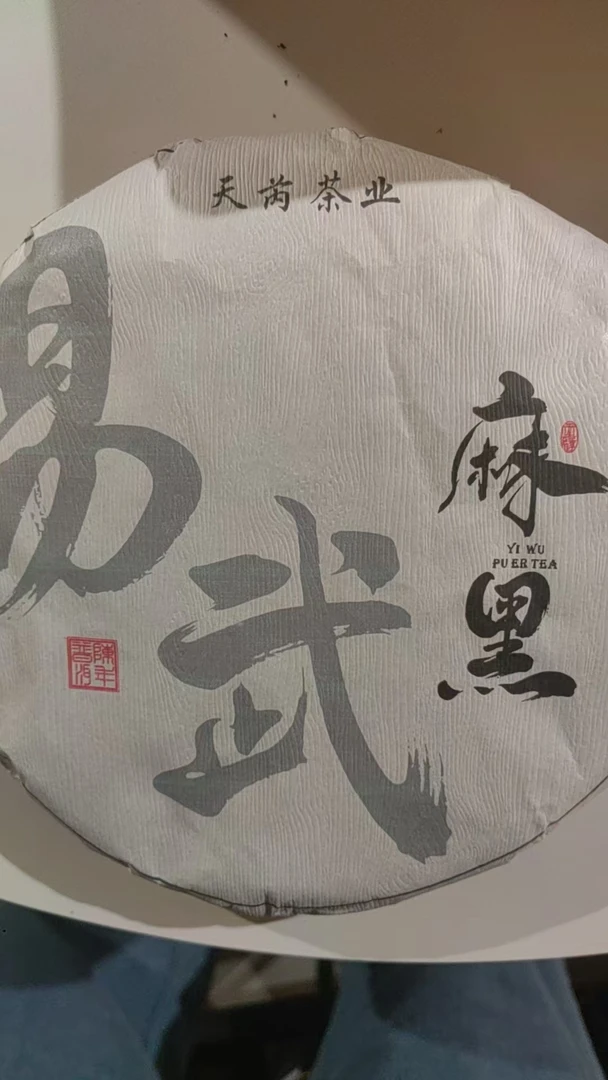 天芮茶业
易武
麻黑
YI WU
PU ER TEA
陳年普洱